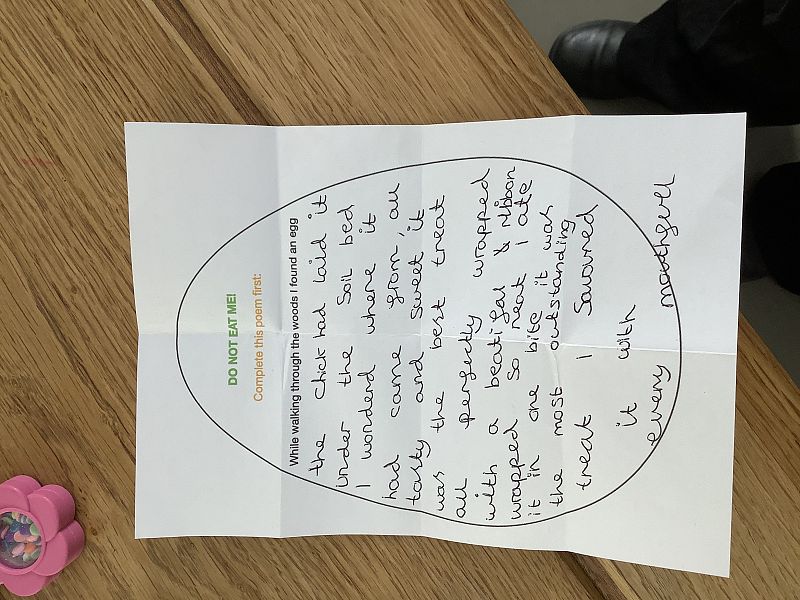 DO NOT EAT ME!
Complete this poem first:
While walking through the woods I found an egg
the chick had laid it
under the soil bed
I wonderd where it
had came from, all
tasty and sweet it
was the best treat
all perfectly wrapped
with a beatifal & ribbon
wrapped so neat I ate
it in one bite it was
the most outstanding
treat I savoured
it with
every mouthfull